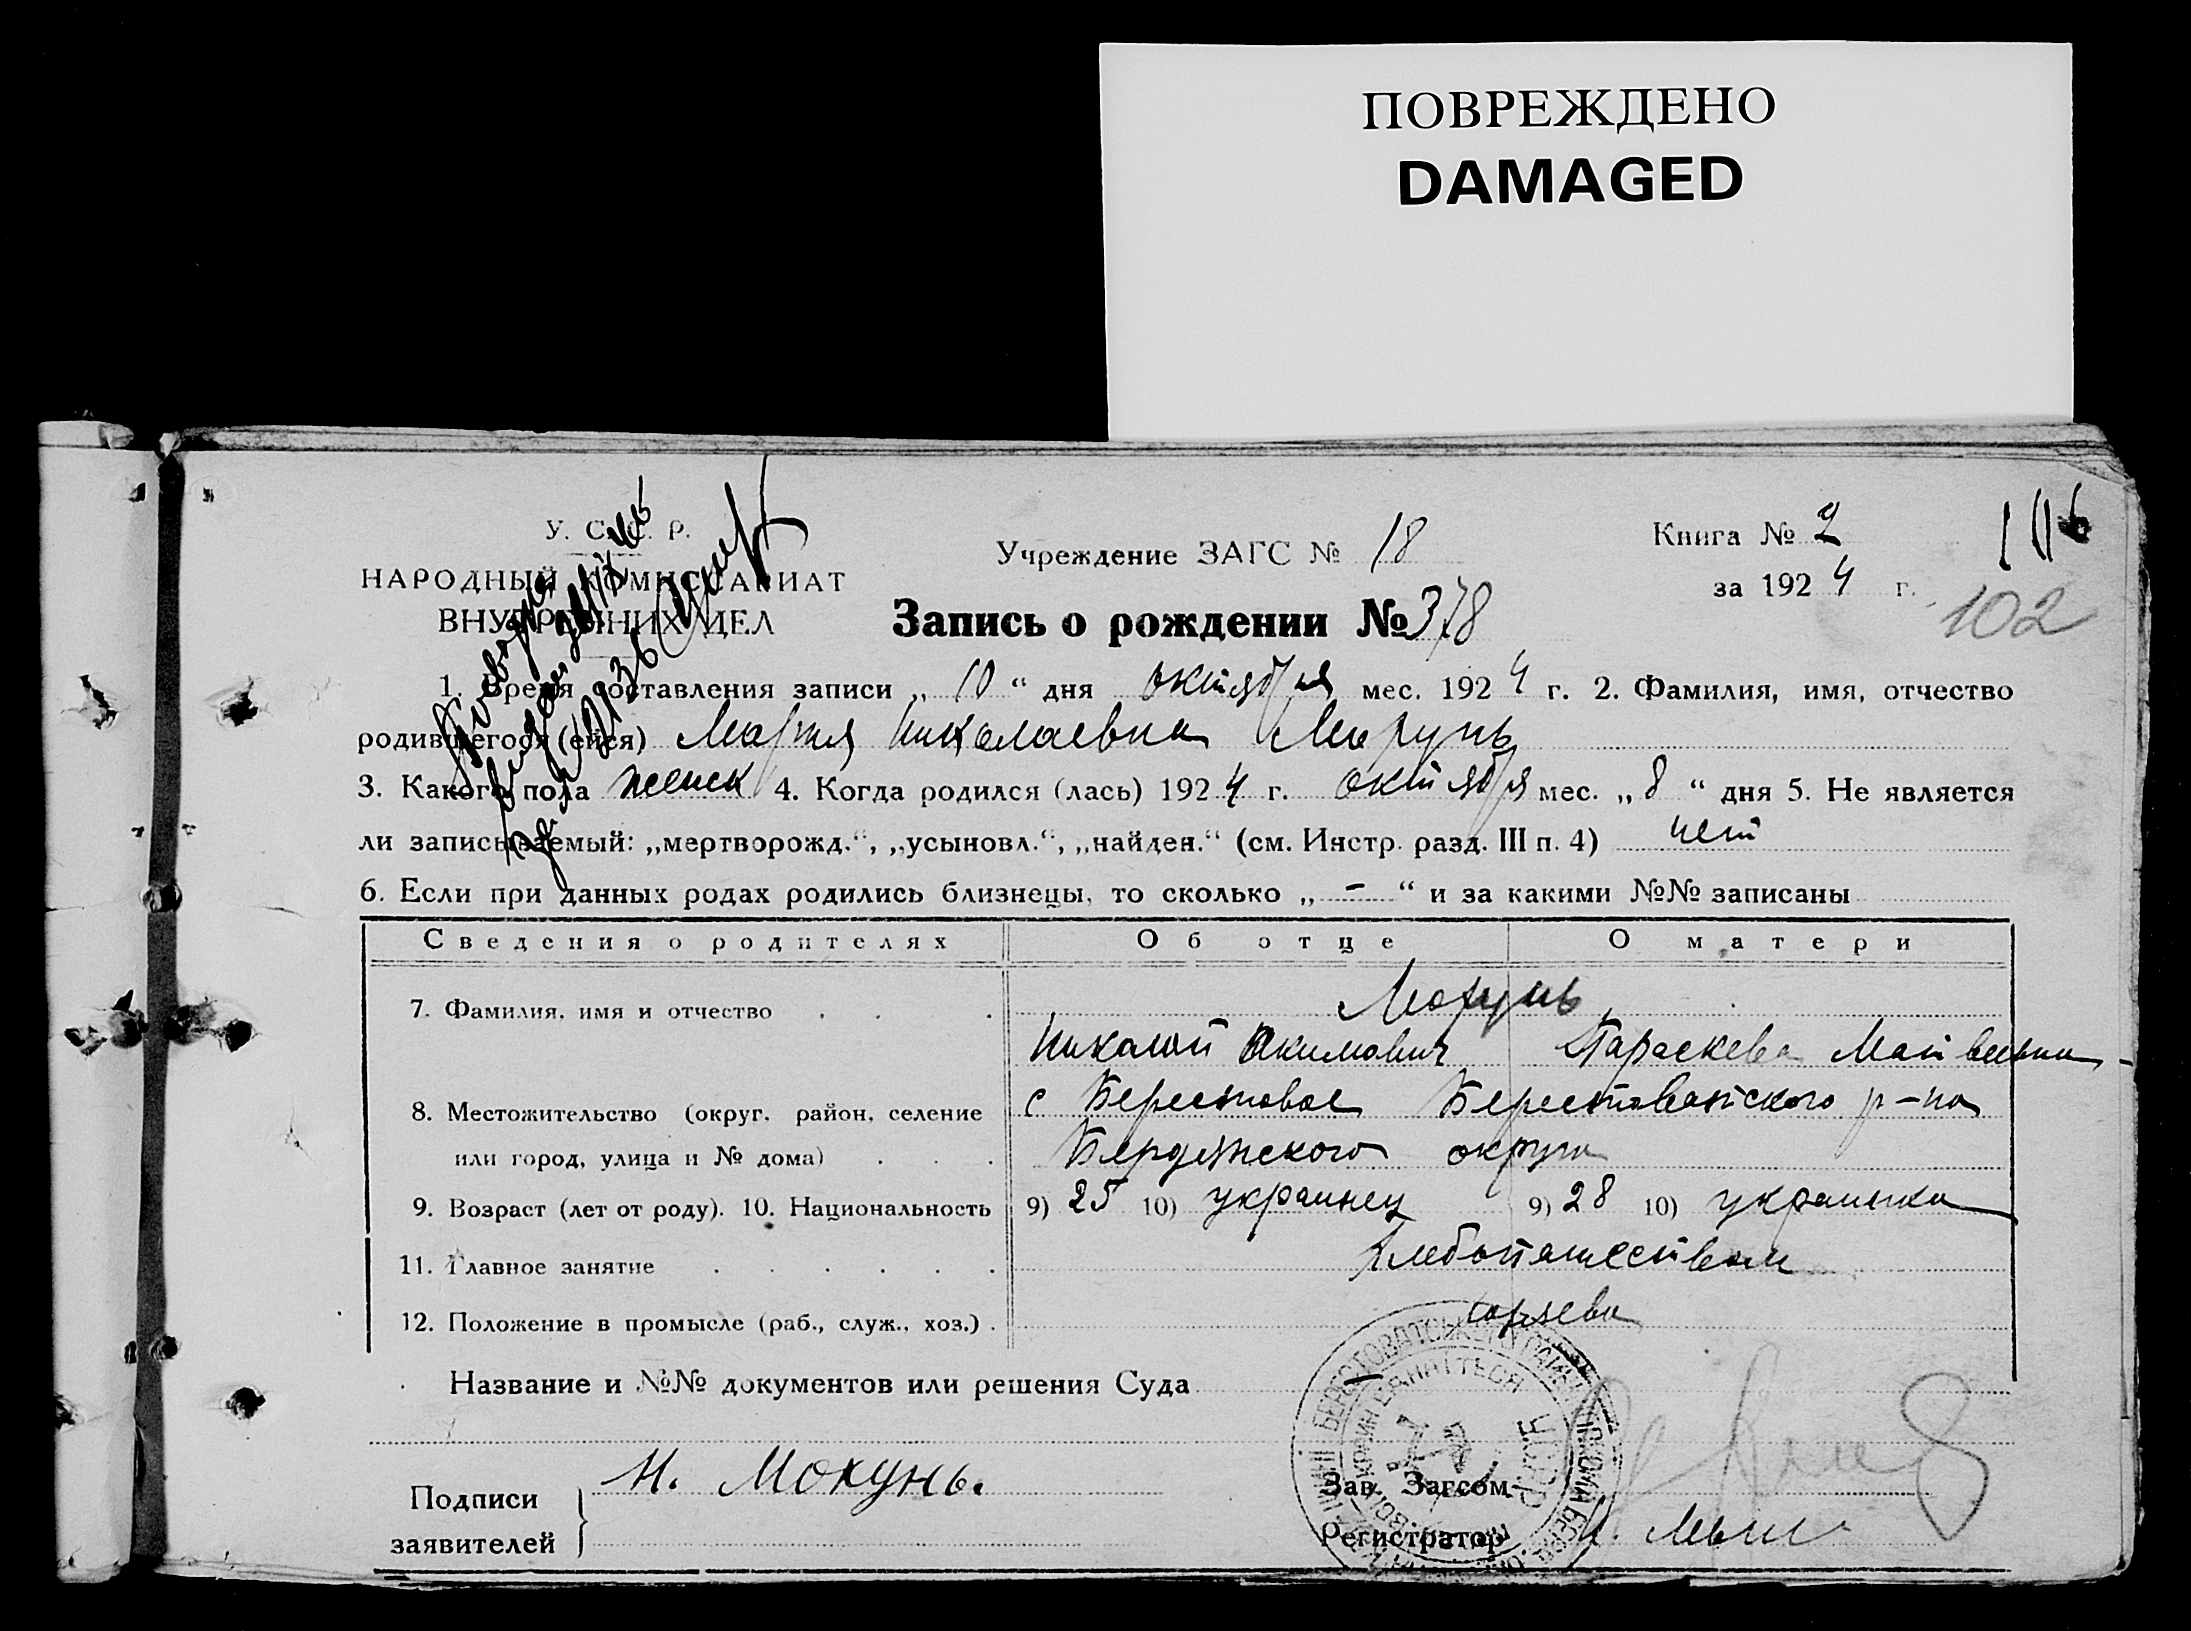 ПОВРЕЖДЕНО
DAMAGED
У. С. С. Р.
НАРОДНЫЙ КОМИССАРИАТ
ВНУТРЕННИХ ДЕЛ
Учреждение ЗАГС № 18
Книга № 2
за 1924 г.
116
102
Запись о рождении № 378
1. Время составления записи „ 10 “ дня октября мес. 1924 г. 2. Фамилия, имя, отчество
родившегося (ейся) Мария Николаевна
3. Какого пола женск 4. Когда родился (лась) 1924 г. октября мес. „ 8 “ дня 5. Не является
ли записываемый: „мертворожд.“, „усыновл.“, „найден.“ (см. Инстр. разд. III п. 4) нет
6. Если при данных родах родились близнецы, то сколько „ - “ и за какими №№ записаны
Сведения о родителях Об отце О матери
7. Фамилия, имя и отчество
Николай Акимович Параскева Матвеевна
8. Местожительство (округ, район, селение с Берестовое Берестоватского р-на
или город, улица и № дома) Бердянского округа
9. Возраст (лет от роду). 10. Национальность 9) 25 10) украинец 9) 28 10) украинка
11. Главное занятие хлебопашеством
12. Положение в промысле (раб., служ., хоз.)
Название и №№ документов или решения Суда —
Подписи
заявителей
Н. Мокунь.
Зав. Загсом
Регистратор